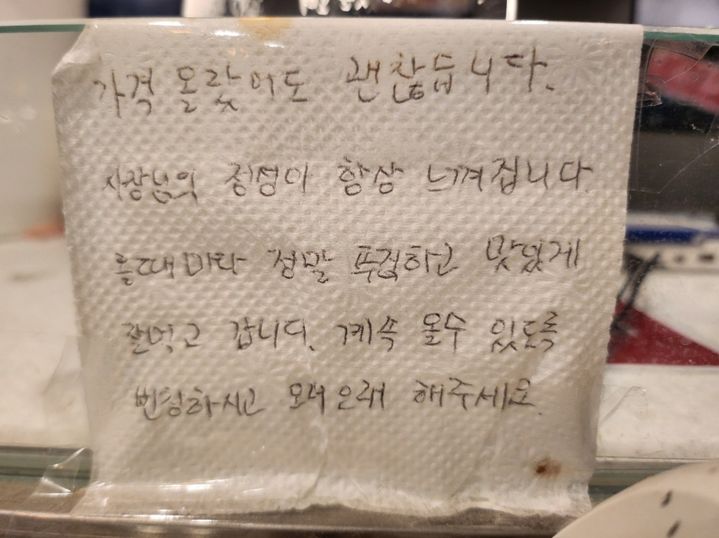 가격 올랐어도 괜찮습니다.
사장님의 정성이 항상 느껴집니다.
올때마다 정말 푸짐하고 맛있게
잘먹고 갑니다. 계속 올수 있도록
번창하시고 오래오래 해주세요.